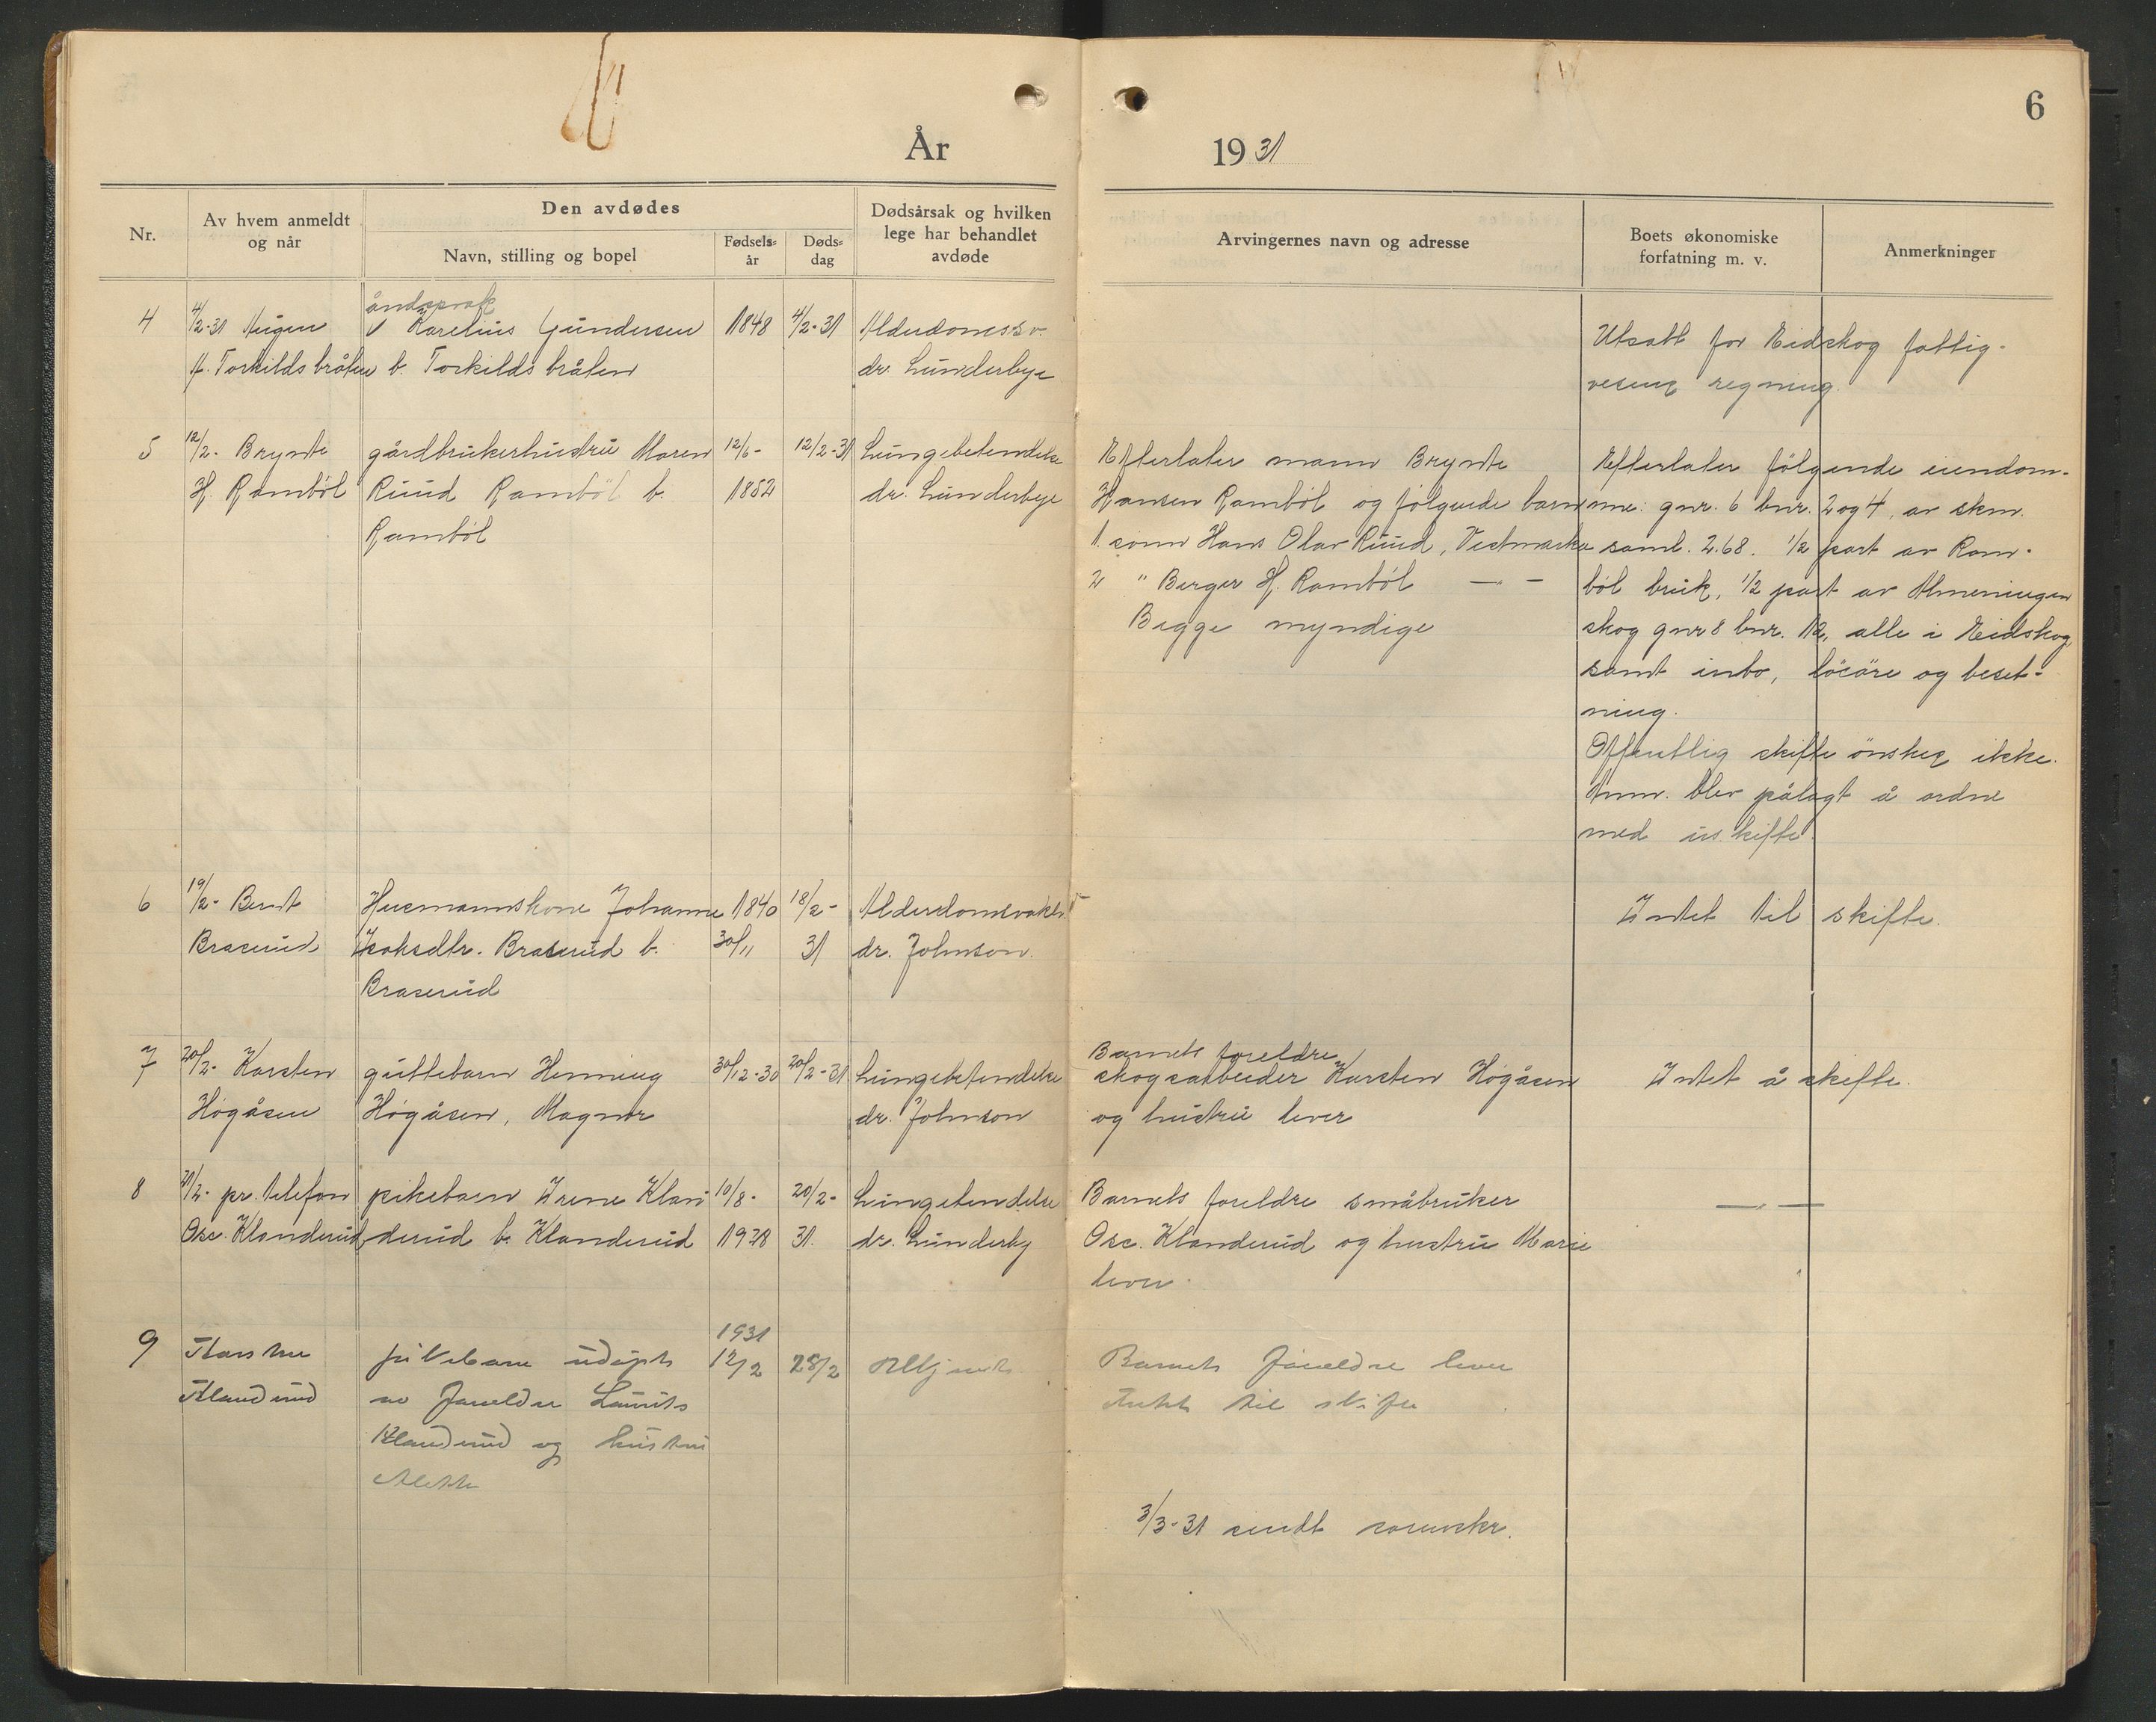 År
19 31
6
Nr.
Av hvem anmeldt
og når
Den avdødes
Navn, stilling og bopel
Fødsels-
år
Døds-
dag
Dødsårsak og hvilken
lege har behandlet
avdøde
Arvingernes navn og adresse
Boets økonomiske
forfatning m. v.
Anmerkninger
åndssvak
4 4/2-31 Karelius Gundersen 1848 4/2-31 Alderdomssv.
Torkildsbråten b. Torkildsbråten dr. Lunderbye
Utsatt for Eidskog fattig-
vesens regning.
5 12/2- Brynte gårdbrukerhustru Maren 12/6- 12/2-31 Lungebetendelse
H. Rambøl Ruud Rambøl b. 1852 dr. Lunderbye
Rambøl
Efterlater mann Brynte
Hansen Rambøl og følgende barn
1. sønn Hans Olav Ruud, Vestmarka
2 " Berger H. Rambøl — " —
Begge myndige
Efterlater følgende eiendom-
me: gnr. 6 bnr. 2 og 4, av skm.
saml. 2.68. 1/2 part av Ram-
bøl bruk, 1/2 part av Almeningen
skog gnr 8 bnr. 12, alle i Eidskog
samt inbo, løsøre og beset-
ning.
Offentlig skifte ønskes ikke.
Anm. blev pålagt å ordne
med
6 19/2- Bernt Husmannskone Johanne 1840 18/2- Alderdomsvakh.
Braserud Isaksdtr. Braserud b. 30/11 31 dr. Johnson.
Braserud
Intet til skifte.
7 20/2- Karsten guttebarn Henning 30/12-30 20/2-31 Lungebetendelse
Høgåsen Høgåsen, Magnor dr. Johnson
Barnets foreldre
skogsarbeider Karsten Høgåsen
og hustru lever
Intet å skifte.
8 21/2- pr. telefon pikebarn Irene Klan- 10/8- 20/2- Lungebetendelse
Osc. Klanderud derud b. Klanderud 1928 31. dr. Lunderby
Barnets foreldre småbruker
Osc. Klanderud og hustru Marie
lever.
— " —
9 1931
Klanderud pikebarn udøpt 12/2 28/2
av foreldre Laurits
Klanderud og hustru
Barnets foreldre lever
Intet til skifte
3/3-31 sendt sorenskr.